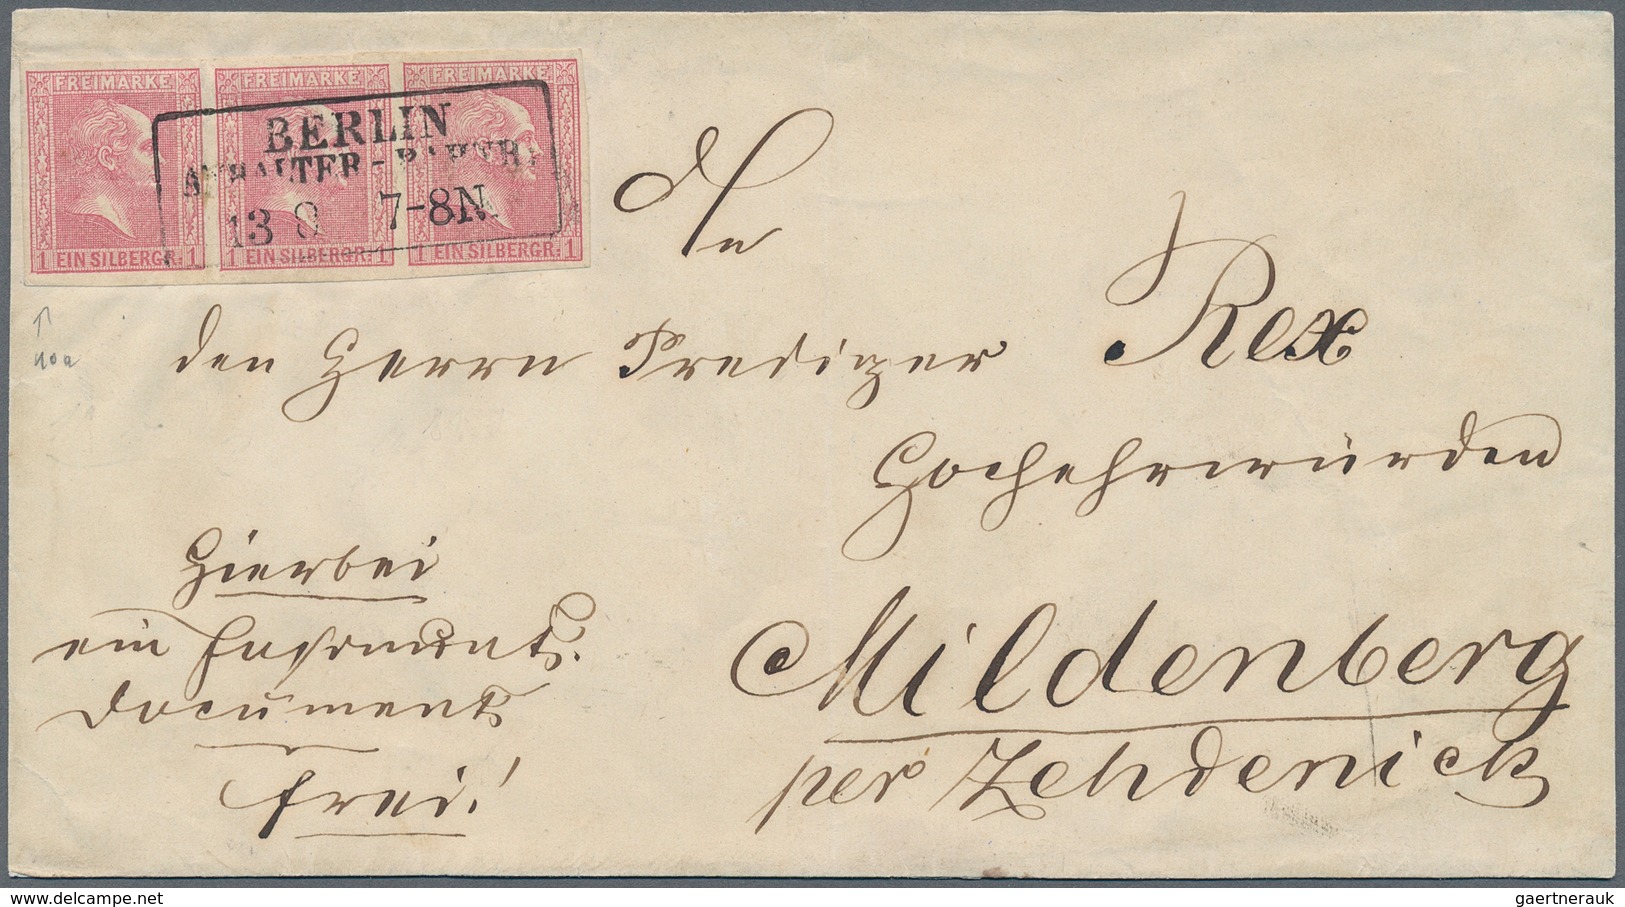 FREIMARKE FREIMARKE FREIMARKE
BERLIN
ANHALTER-BAHNH.
13 8 7-8N.
1 EIN SILBERGR. 1 1 EIN SILBERGR. 1 1 EIN SILBERGR. 1
An
den Herrn Prediger Rex
Hochehrwürden
Hierbei
ein
document
frei!
Mildenberg
per Zehdenick
10a
gaertnerauk